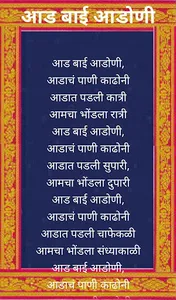 आड बाई आडोणी
आड बाई आडोणी,
आडाचं पाणी काढोनी
आडात पडली कात्री
आमचा भोंडला रात्री
आड बाई आडोणी,
आडाचं पाणी काढोनी
आडात पडली सुपारी,
आमचा भोंडला दुपारी
आड बाई आडोणी,
आडाचं पाणी काढोनी
आडात पडली चाफेकळी
आमचा भोंडला संध्याकाळी
आड बाई आडोणी,
आडाचं पाणी काढोनी